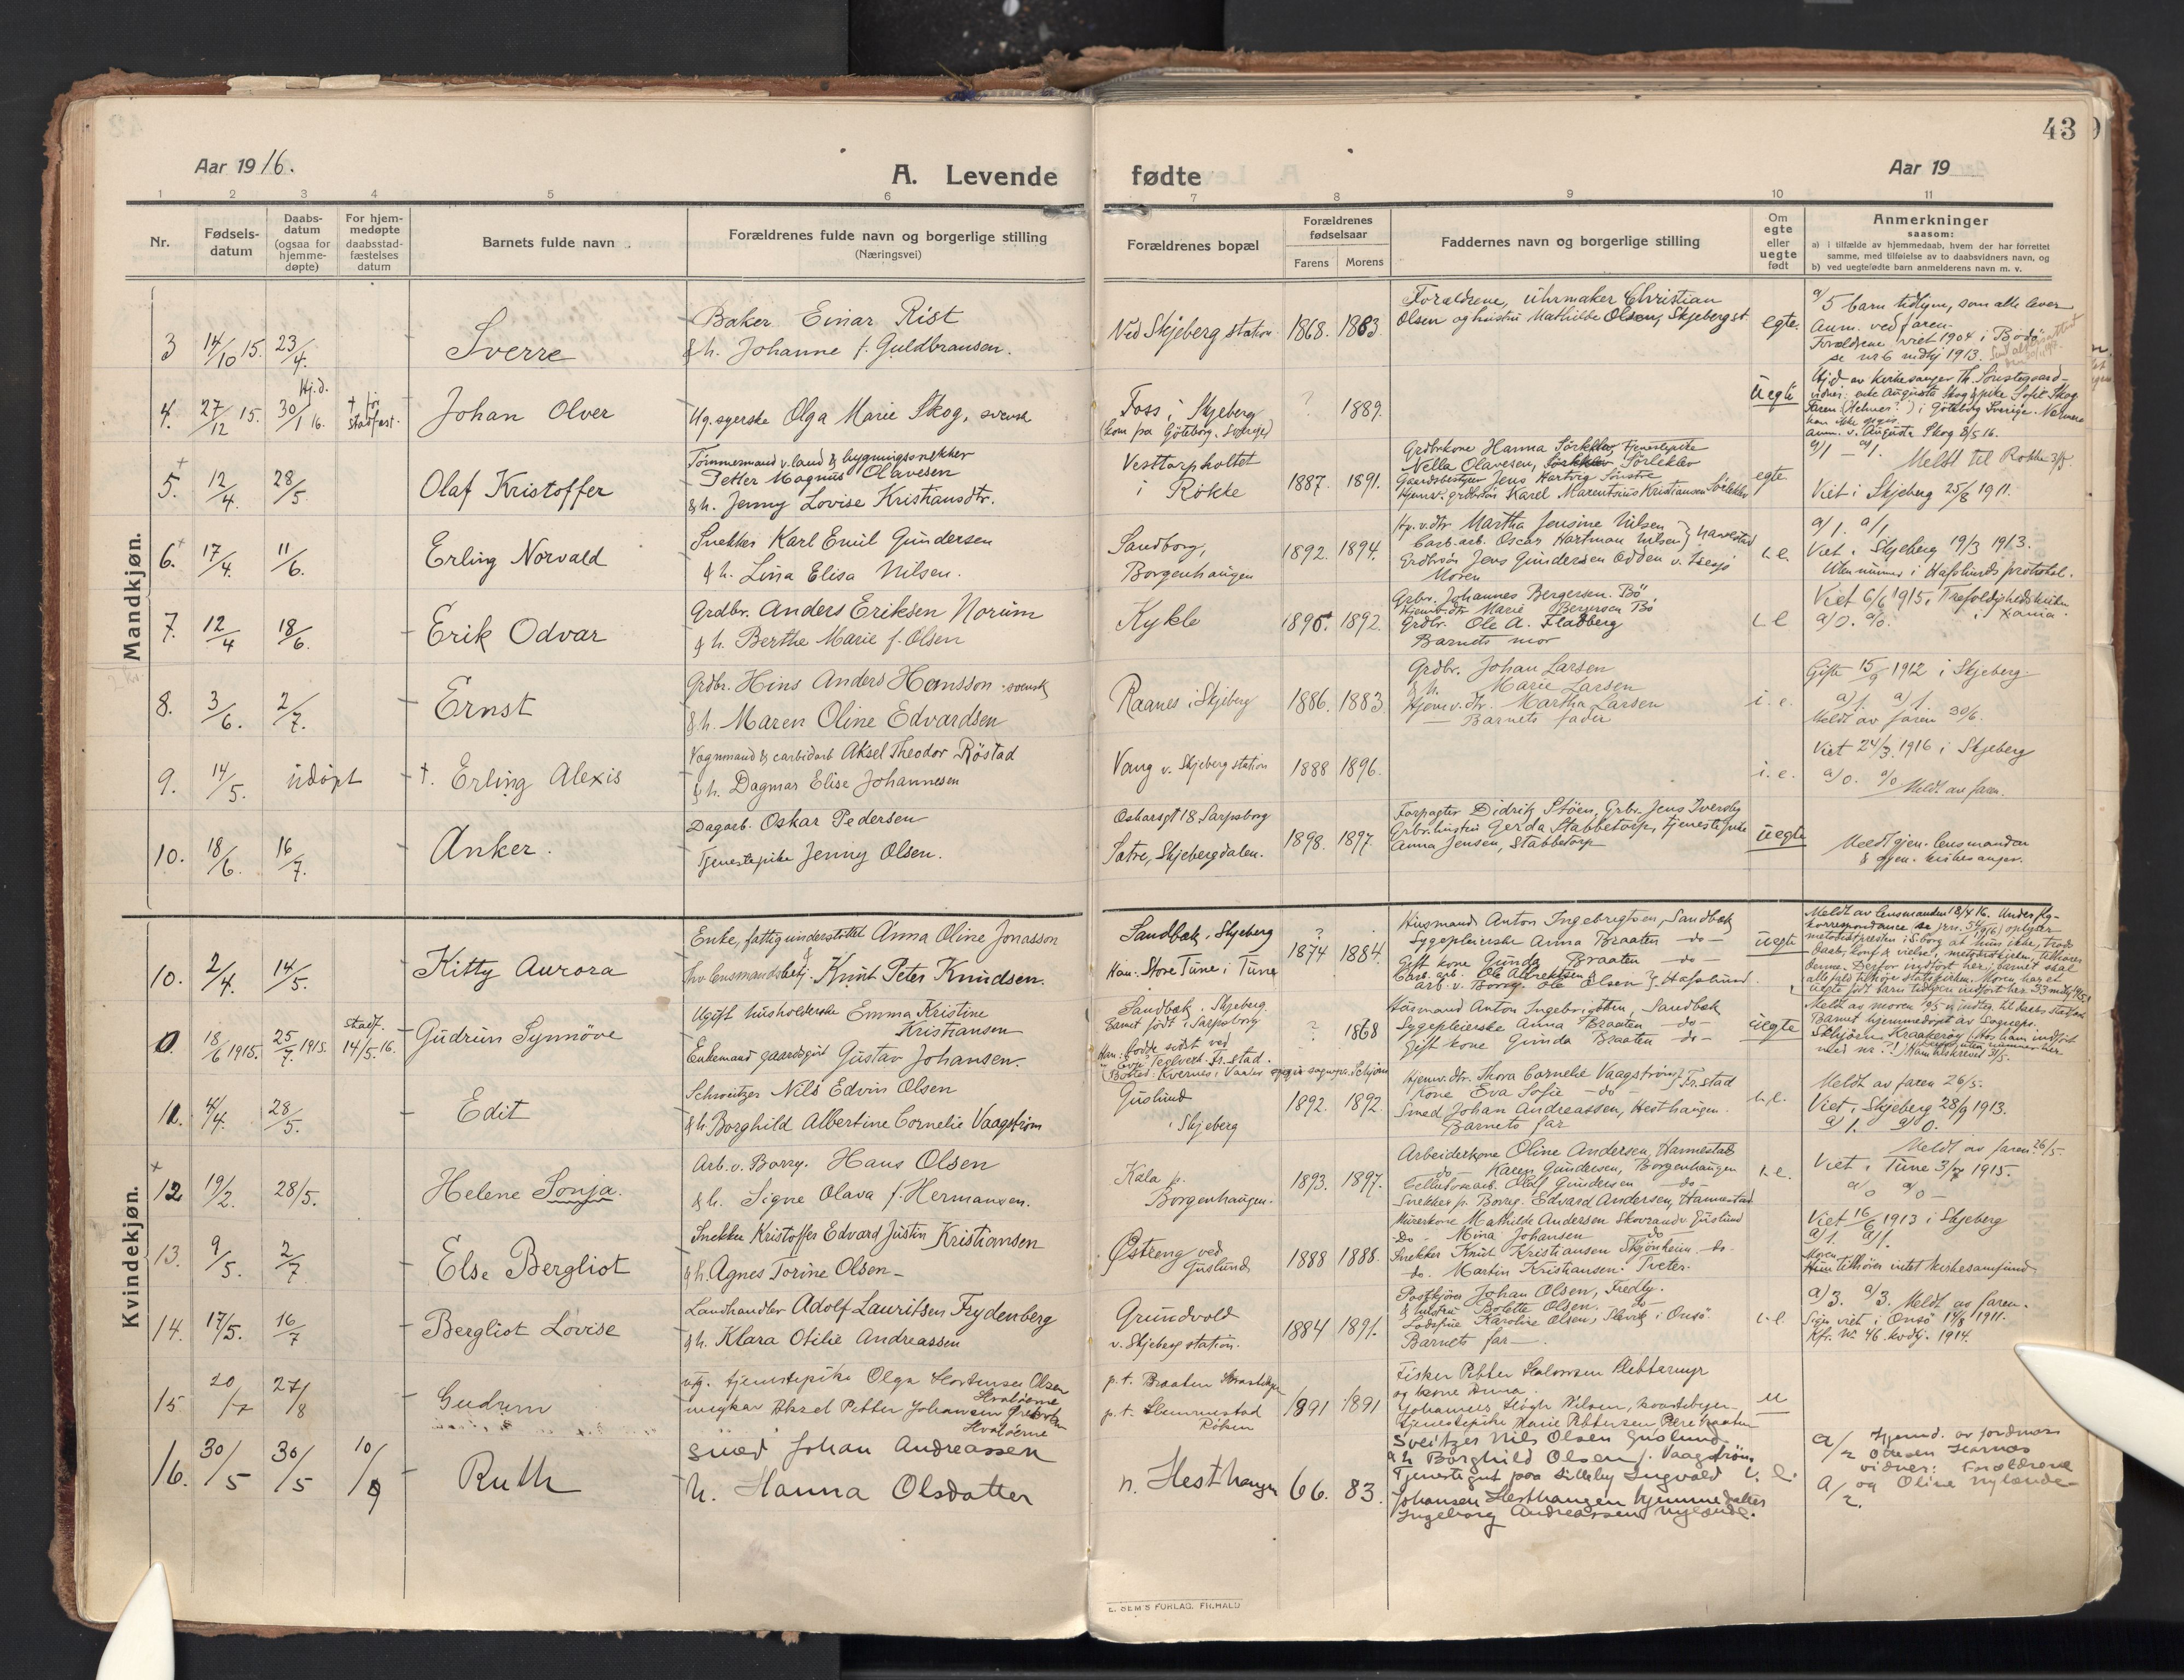 43
Aar 1916.
A. Levende fødte
Aar 19
1 2 3 4 5 6 7 8 9 10 11
Nr.
Fødsels-
datum
Daabs-
datum
(ogsaa for
hjemme-
døpte)
For hjem-
medøpte
daabsstad-
fæstelses
datum
Barnets fulde navn
Forældrenes fulde navn og borgerlige stilling
(Næringsvei)
Forældrenes bopæl
Forældrenes
fødselsaar
Farens Morens
Faddernes navn og borgerlige stilling
Om
egte
eller
uegte
født
Anmerkninger
saasom:
a) i tilfælde av hjemmedaab, hvem der har forrettet
samme, med tilføielse av to daabsvidners navn, og
b) ved uegtefødte barn anmelderens navn m. v.
Mandkjøn.
3 14/10 15. 23/4. Sverre
Baker Einar Rist
& h. Johanne f. Guldbransen.
Ved Skjeberg station 1868. 1883.
Forældrene, uhrmaker Christian
Olsen og hustru Mathilde Olsen, Skjeberg st.
egte.
a/5 barn tidligere, som alle lever
Anm. ved faren.
Forældrene viet 1904 i Bodø
se nr 6 mdkj 1913.
4. 27/12 15. Hj.d. 30/1 16. † før stadfæst. Johan Olver
Ug. syerske Olga Marie Skog, svensk
Foss i Skjeberg
(kom fra Göteborg, Sverige)
? 1889.
Uegte
Hj.d. av kirkesanger Th. Sonstegaard
vidner: enke Augusta Skog & pike Sofie Skog
Faren (Helmer ?) i Göteborg Sverige. Nærmere
kan ikke opgis.
anm. v. Augusta Skog 8/5 16.
5. 12/4. 28/5. Olaf Kristoffer
Tømmermand v. land & bygningssnekker
Petter Magnus Olavesen
& h. Jenny Lovise Kristiansdtr.
Vesttorpholtet
i Rokke
1887. 1891.
Grdbrkone Hanna Sørleklev, tjenestepike
Nella Olavesen, Sørleklev
Gaardsbestyrer Jens Hartvig
Hjemv. grdbrsøn Karel Marentsius Kristiansen Sørlekle
egte
a/1 — a/1.
Meldt til Rokke 3/5.
Viet i Skjeberg 25/8 1911.
6. 17/4. 11/6. Erling Norvald
Snekker Karl Emil Gundersen
& h. Lina Elisa Nilsen.
Sandborg,
Borgenhaugen
1892. 1894.
Hj. v. dtr Martha Jensine Nilsen
Carb. arb. Oscar Hartman Nilsen
Grdbrsøn Jens Gundersen Odden v. Isesjø
Moren
i. e.
a/1. a/1.
Viet i Skjeberg 19/3 1913.
Uten nummer i Hafslunds protokol.
7. 12/4 18/6. Erik Odvar
Grdbr. Anders Eriksen Norum
& h. Berthe Marie f. Olsen
Kykle
1895. 1892.
Grbr. Johannes Bergersen. Bø.
Hjemv. dtr Marie Bergersen Bø
Grdbr. Ole A. Fladberg
Barnets mor
i. e
Viet 6/6 1915, Trefoldighedskirken
i Xania.
a/0. a/0.
8. 3/6. 2/7. Ernst
Grdbr. Hins Anders Hansson - svensk
& h. Maren Oline Edvardsen
Raanes i Skjeberg 1886. 1883.
Grdbr. Johan Larsen
& h. Marie Larsen
Hjemv. dtr. Martha Larsen
— Barnets fader
i. e.
Gifte 15/9 1912 i Skjeberg.
a/1. a/1.
Meldt av faren 30/6.
9. 14/5. udøpt †. Erling Alexis
Vognmand & carbidarb Aksel Theodor Røstad
& h. Dagmar Elise Johannesen
Vang v. Skjeberg station 1888 1896.
i. e.
Viet 24/3 1916 i Skjeberg
a/0. a/0 Meldt av faren.
10. 18/6. 16/7. Anker.
Dagarb. Oskar Pedersen
Tjenestepike Jenny Olsen.
Oskarsgt 18, Sarpsborg
Satre, Skjebergdalen.
1898. 1897.
Forpagter Didrik Støen, Grbr. Jens Iversby
Grbr. hustru Gerda Stabbetorp, tjenestepike
Anna Jensen, Stabbetorp
uegte
Meldt gjen. lensmanden
& gjen. kirkesanger.
Kvindekjøn.
10. 2/4. 14/5. Kitty Aurora
Enke, fattigunderstøttet Anna Oline Jonasson
&
fhv lensmandsbetj. Knut Peter Knudsen.
Sandbæk, Skjeberg
Han: Store Tune i Tune
? 1874 1884.
Husmand Anton Ingebrigtsen, Sandbæk
Sygepleierske Anna Braaten — do —
Gift kone Gunda Braaten — do —
Carb. arb. Ole Albrektsen
arb. v. Borreg. Ole Olsen } Hafslund.
uegte
Meldt av lensmanden 18/4 16.
0. 18/6 1915. 25/7 1915. stadf. 14/5.16. Gudrun Synnöve
Ugift husholderske Emma Kristine
Kristiansen
Enkemand gaardsgut Gustav Johansen.
Sandbæk, Skjeberg.
Barnet født i Sarpsborg
Han: bodde sidst ved
? 1868
Husmand Anton Ingebrigtsen, Sandbæk
Sygepleierske Anna Braaten — do —
Gift kone Gunda Braaten — do —
uegte
Barnet hjemmedøpt av Sognepr.
11. 4/4. 28/5. Edit
Schweitzer Nils Edvin Olsen
& h. Borghild Albertine Cornelie Vaagstrøm
Guslund
i Skjeberg
1892. 1892
Hjemv. dtr. Thora Cornelie Vaagstrøm
Kone Eva Sofie — do —
Smed Johan Andreassen, Hesthaugen.
Barnets far
i. e.
Meldt av faren 26/5.
Viet i Skjeberg 28/9 1913.
a/1. a/0.
12 19/2. 28/5. Helene Sonja.
Arb. v. Borreg. Hans Olsen
& h. Signe Olava f. Hermansen.
Kala p.
Borgenhaugen.
1893. 1897.
Arbeiderkone Oline Andersen, Hannestad
do Karen Gundersen, Borgenhaugen
Cellulosearb. Olaf Gundersen — do —
Snekker p. Borreg. Edvard Andersen, Hannestad
i. e.
Meldt av faren 26/5.
Viet i Tune 3/7 1915.
a/0 a/0 —
13. 9/5. 2/7 Else Bergliot
Snekker Kristoffer Edvard Justin Kristiansen
& h. Agnes Torine Olsen —
Østreng ved
Guslund
1888 1888.
Murerkone Mathilde Andersen Skovrand v Guslund
— do — Mina Johansen do
Snekker Knut Kristiansen Skjønheim do.
do. Martin Kristiansen. Tveter.
Viet 16/6 1913 i Skjeberg
a/1. a/1.
Moren tilhører intet kirkesamfund.
14. 17/5. 16/7 Bergliot Lovise
Landhandler Adolf Lauritsen Frydenberg
& h. Klara Otilie Andreassen
Grundvold
v. Skjeberg station.
1884 1891.
Postkjører Johan Olsen, Fredly.
& hustru Bolette Olsen. do —
Lodsfrue Karoline Olsen, Slevik i Onsø
Barnets far —
i. e
a/3. a/3. Meldt av faren.
Sign viet i Onsø 14/8 1911.
Kfr. Nr 46. kvdkj. 1914.
15 20/7 27/8 Gudrun
ug. tjenestepike Olga Hortense Olsen
Hvaløerne
ungkar Aksel Petter Johansen
Hvaløerne
p.t. Braaten
p.t. Hemmestad
Röken
1891 1891
Fisker Petter
og kone Anna.
Johannes Høgh Nilsen,
tjenestepike Marie Pettersen,
u
16. 30/5 30/5 10/9 Ruth
smed Johan Andreassen
h. Hanna Olsdatter
n. Hesthaugen 66. 83.
Sveitzer Nils Olsen Guslund
& h Borghild Olsen f. Vaagstrøm
Tjenestegut paa Lilleby Ingvald
Johansen Hesthaugen hjemmedatter
Ingeborg Andreassen Nylænde.
i. e.
a/2 Hjemd. av jordmor
Ottesen
vidner: Forældrene
A/2. og Oline Nylænde
E. SEM'S FORLAG, FR.HALD